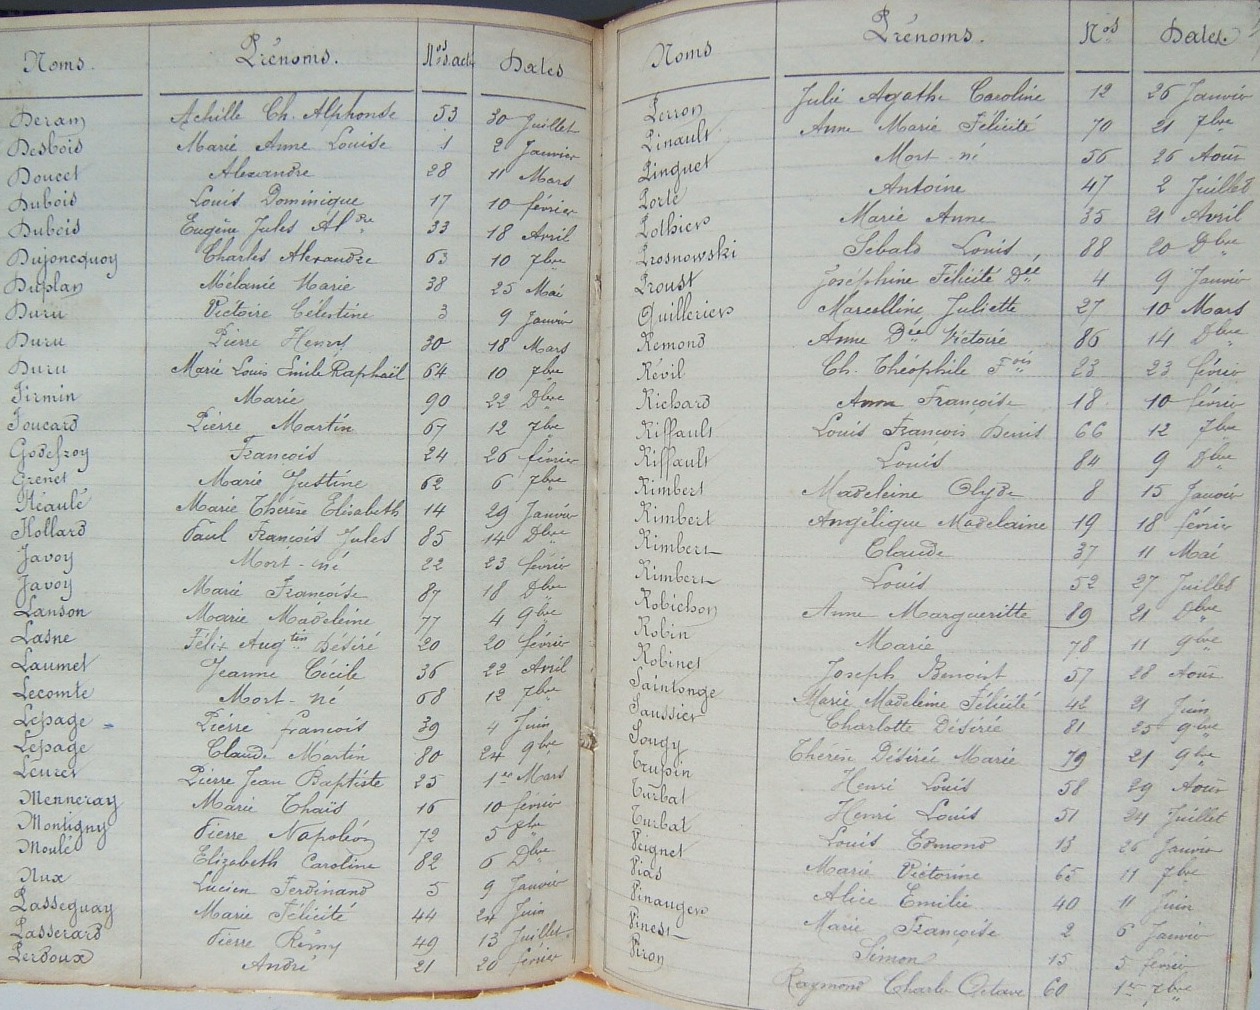 Noms. Prénoms. Nos. act. Dates
Deran Achille Ch. Alphonse 53 30 Juillet
Desbois Marie Anne Louise 1 2 Janvier
Doucet Alexandre 28 11 Mars
Dubois Louis Dominique 17 10 février
Dubois Eugène Jules Aldre 33 18 Avril
Dujoncquoy Charles Alexandre 63 10 7bre
Duplan Mélanie Marie 38 25 Mai
Duru Victoire Célestine 3 9 Janvier
Duru Pierre Henry 30 18 Mars
Duru Marie Louis Emile Raphaël 64 10 7bre
Firmin Marie 90 22 Dbre
Foucard Pierre Martin 67 12 7bre
Godefroy François 24 26 février
Grenet Marie Justine 62 6 7bre
Héaulé Marie Thérèse Elisabeth 14 29 Janvier
Hollard Paul François Jules 85 14 Dbre
Javoy Mort-né 22 23 février
Javoy Marie Françoise 87 18 Dbre
Lanson Marie Madeleine 77 4 9bre
Lasne Félix Augtin Désiré 20 20 février
Laumet Jeanne Cécile 36 22 Avril
Lecomte Mort-né 68 12 7bre
Lepage Pierre françois 39 4 Juin
Lepage Claude Martin 80 24 9bre
Leuret Pierre Jean Baptiste 25 1er Mars
Menneray Marie Thaïs 16 10 février
Montigny Pierre Napoléon 72 5
Moulé Elizabeth Caroline 82 6 Dbre
Nux Lucien Ferdinand 5 9 Janvier
Passeguay Marie Félicité 44 24 Juin
Passerard Pierre Rémy 49 13 Juillet
Perdoux André 21 20 février
Noms Prénoms. Nos Dates.
Perron Julie Agathe Caroline 12 26 Janvier
Pinault Anne Marie Félicité 70 21 7bre
Pinguet Mort-né 56 26 Août
Porte Antoine 47 2 Juillet
Pothier Marie Anne 35 21 Avril
Prosnowski Sebald Louis 88 20 Dbre
Proust Joséphine Félicité Dée 4 9 Janvier
Quillerier Marcelline Juliette 27 10 Mars
Remond Anne Dée Victoire 86 14 Dbre
Révil Ch. Théophile Fois 23 23 février
Richard Anne Françoise 18 10 février
Riffault Louis François Denis 66 12 7bre
Riffault Louis 84 9 Dbre
Rimbert Madeleine Olyde 8 15 Janvier
Rimbert Angélique Madelaine 19 18 février
Rimbert Claude 37 11 Mai
Rimbert Louis 52 27 Juillet
Robichon Anne Margueritte 89 21 Dbre
Robin Marie 78 11 9bre
Robinet Joseph Benoist 57 28 Août
Saintonge Marie Madeleine Félicité 42 21 Juin
Saussier Charlotte Désirée 81 25 9bre
Sougy Thérèse Désirée Marie 79 21 9bre
Trupin Henri Louis 58 29 Août
Turbat Henri Louis 51 24 Juillet
Turbat Louis Edmond 13 26 Janvier
Veignet Marie Victorine 65 11 7bre
Vias Alice Emilie 40 11 Juin
Vinauger Marie Françoise 2 6 Janvier
Vinest Simon 15 5 février
Viron Raymond Charles Octave 60 1er 7bre